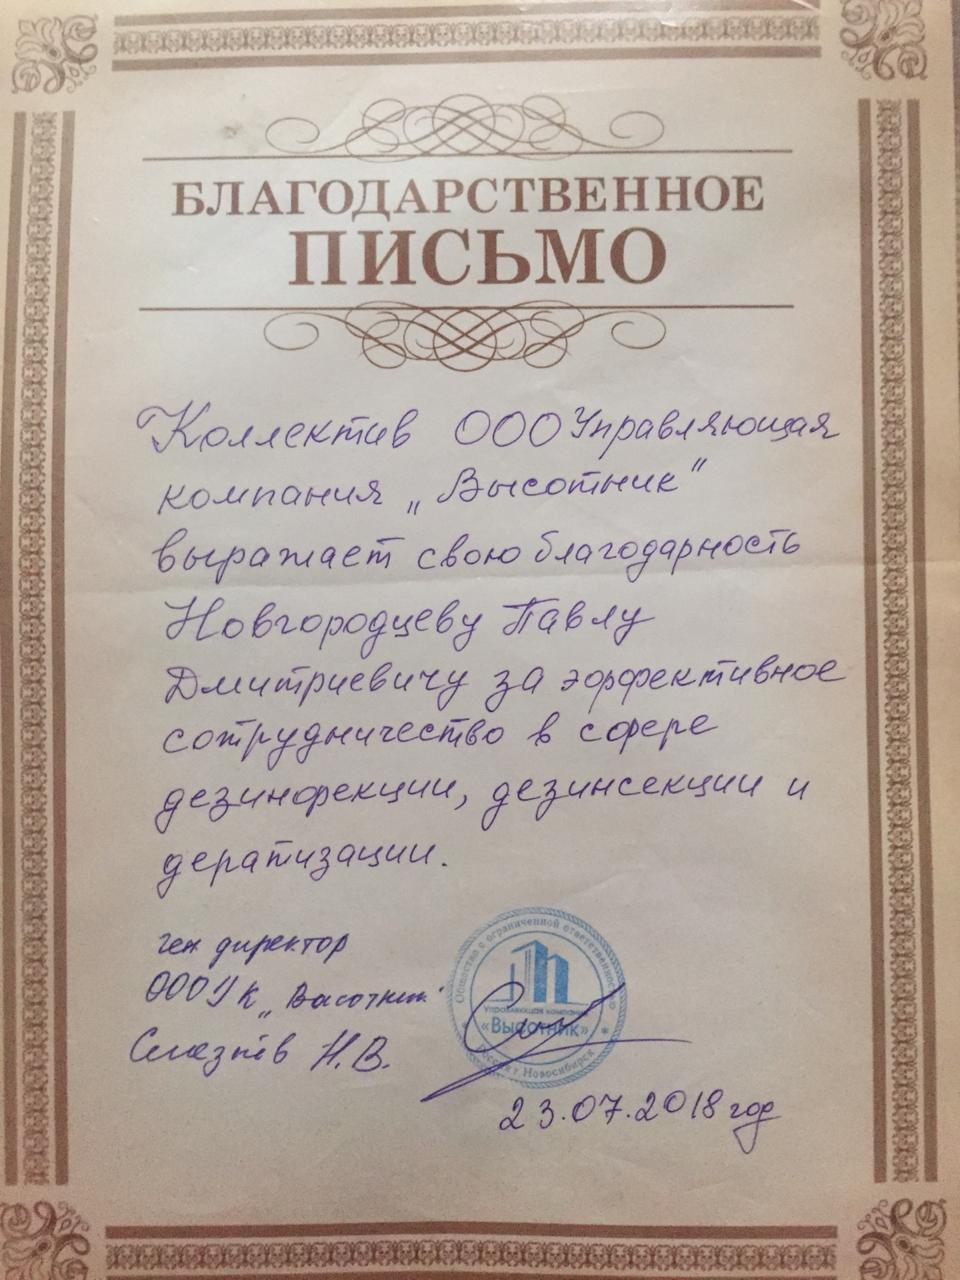 БЛАГОДАРСТВЕННОЕ
ПИСЬМО
Коллектив ООО Управляющая
компания „Высотник"
выражает свою благодарность
Новгородцеву Павлу
Дмитриевичу за эффективное
сотрудничество в сфере
дезинфекции, дезинсекции и
дератизации.
ген директор
ООО УК „Высотник"
Н.В.
Общество с ограниченной ответственностью
Управляющая компания
«Высотник»
Россия г Новосибирск
23.07.2018 год